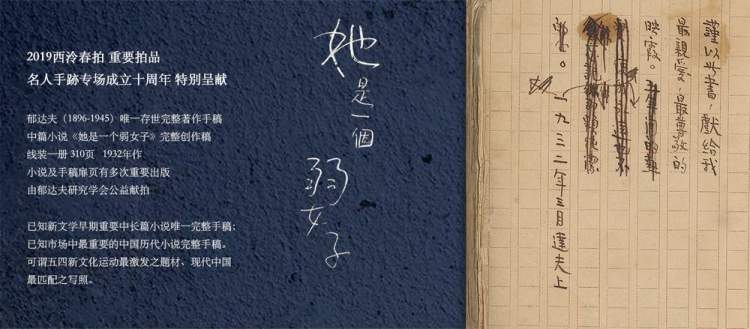 2019西泠春拍 重要拍品
名人手跡专场成立十周年 特别呈献
郁达夫（1896-1945）唯一存世完整著作手稿
中篇小说《她是一个弱女子》完整创作稿
线装一册 310页 1932年作
小说及手稿扉页有多次重要出版
由郁达夫研究学会公益献拍
已知新文学早期重要中长篇小说唯一完整手稿；
已知市场中最重要的中国历代小说完整手稿。
可谓五四新文化运动最激发之题材、现代中国
最匹配之写照。
她是一個
弱女子
謹以此書，獻給我
最親愛，最尊敬的
映霞。
一九三二年三月達夫上